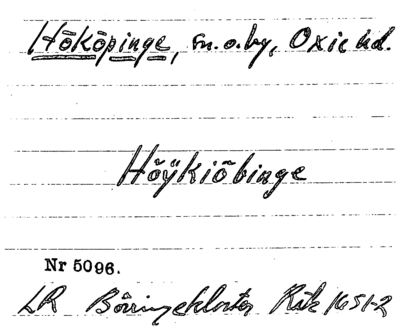 Hököpinge, sn. o. by, Oxie hd.
Höÿkiöbinge
Nr 5096.
LR Börringekloster Räk 1651-2